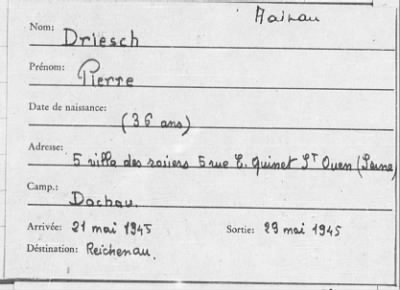 Mainau
Nom: Driesch
Prénom: Pierre
Date de naissance: (36 ans)
Adresse: 5 villa des rosiers 5 rue E. Quinet St Ouen (Seine)
Camp.: Dachau.
Arrivée: 21 mai 1945 Sortie: 29 mai 1945
Déstination: Reichenau.